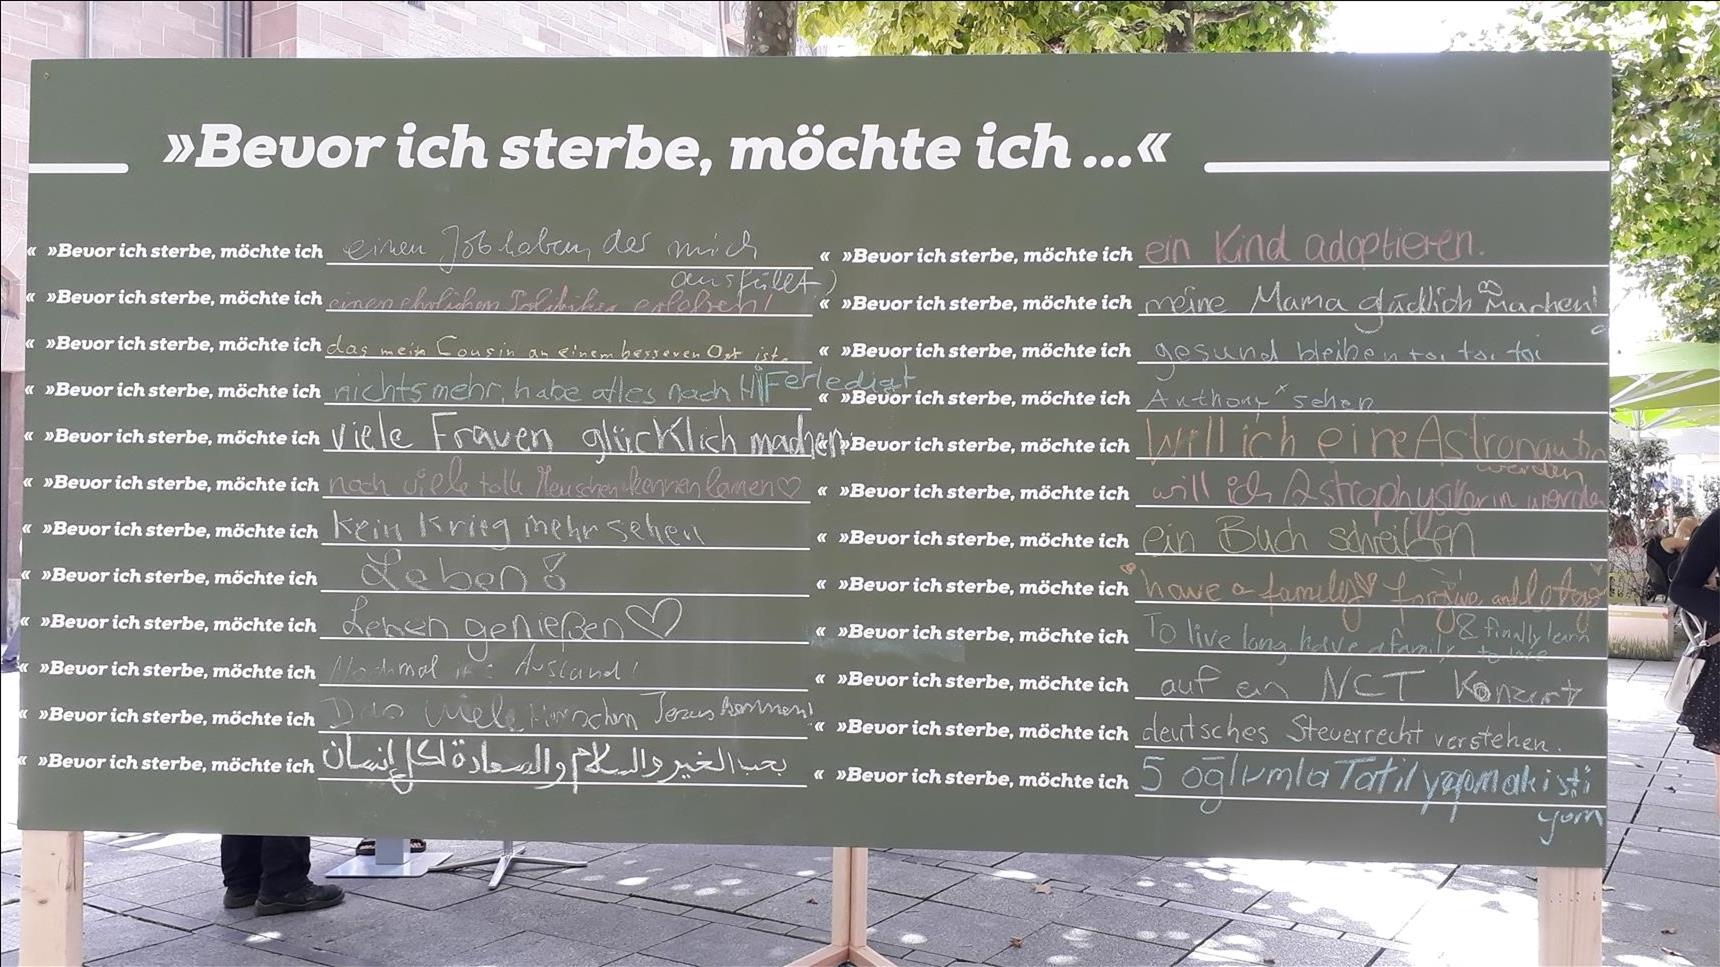 »Bevor ich sterbe, möchte ich ...«
« »Bevor ich sterbe, möchte ich einen Job haben, das mich
ausfüllt)
« »Bevor ich sterbe, möchte ich einen ehrlichen Politiker erleben!
« »Bevor ich sterbe, möchte ich das mein Cousin an einem besseren Ort ist.
« »Bevor ich sterbe, möchte ich nichts mehr, habe alles nach erledigt
« »Bevor ich sterbe, möchte ich viele Frauen glücklich machen
« »Bevor ich sterbe, möchte ich noch viele tolle Menschen kennenlernen♡
« »Bevor ich sterbe, möchte ich kein Krieg mehr sehen
« »Bevor ich sterbe, möchte ich Leben!
« »Bevor ich sterbe, möchte ich Leben genießen♡
« »Bevor ich sterbe, möchte ich Nochmal ins Ausland!
« »Bevor ich sterbe, möchte ich Das viele Menschen Jesus kennen!
« »Bevor ich sterbe, möchte ich بحب الخير والسلام والسعادة لكل إنسان
« »Bevor ich sterbe, möchte ich ein Kind adoptieren.
« »Bevor ich sterbe, möchte ich meine Mama glücklich machen!
« »Bevor ich sterbe, möchte ich gesund bleiben toi toi toi
« »Bevor ich sterbe, möchte ich Anthony sehen
« »Bevor ich sterbe, möchte ich will ich eine Astronautin
werden
« »Bevor ich sterbe, möchte ich will ich Astrophysikerin werden
« »Bevor ich sterbe, möchte ich ein Buch schreiben
« »Bevor ich sterbe, möchte ich have a family♡ forgive and
« »Bevor ich sterbe, möchte ich To live long, have a family & finally learn
to love
« »Bevor ich sterbe, möchte ich auf ein NCT Konzert
« »Bevor ich sterbe, möchte ich deutsches Steuerrecht verstehen.
« »Bevor ich sterbe, möchte ich 5 oğlumla Tatil yapmak isti
yorm